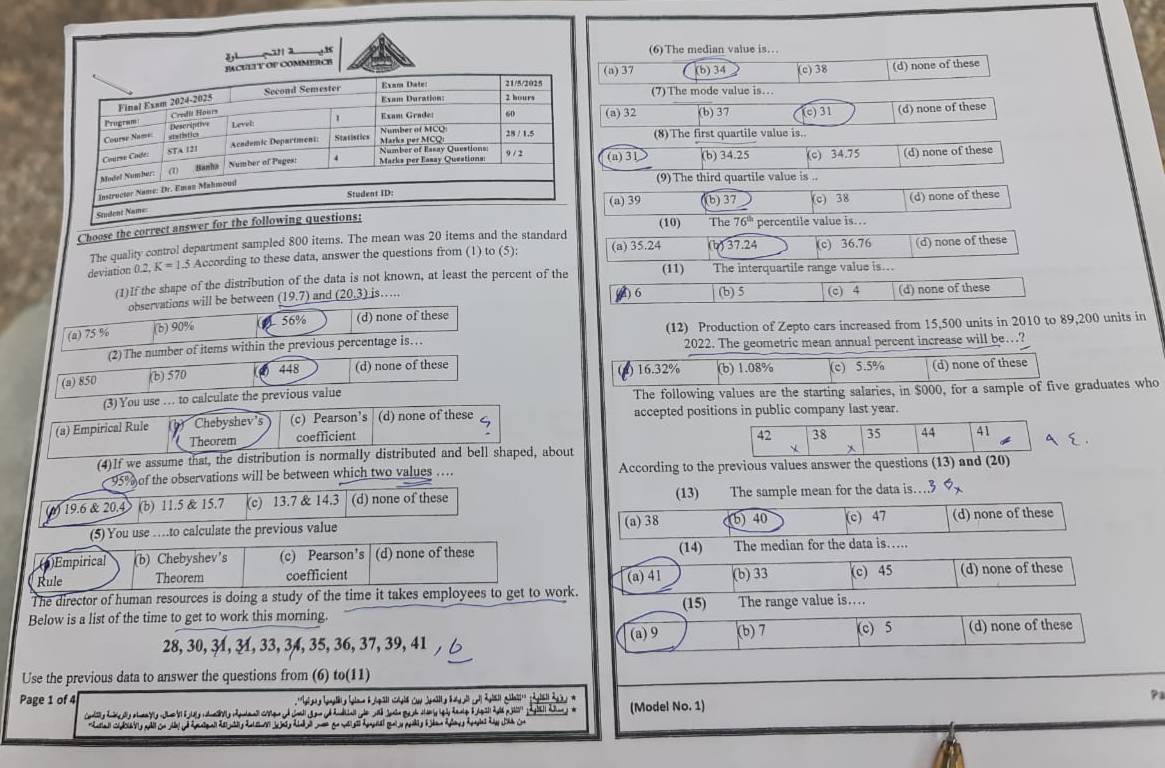 كلية التجارة
FACULTY OF COMMERCE
Final Exam 2024-2025 Second Semester Exam Date: 21/5/2025
Program: Credit Hours Level: 1 Exam Duration: 2 hours
Course Name: Descriptive statistics Academic Department: Statistics Exam Grade: 60
Course Code: STA 121 Number of MCQ: Marks per MCQ: 28 / 1.5
Model Number: (1) Banha Number of Pages: 4 Number of Essay Questions: Marks per Essay Questions: 9 / 2
Instructor Name: Dr. Eman Mahmoud
Student Name: Student ID:
Choose the correct answer for the following questions:
The quality control department sampled 800 items. The mean was 20 items and the standard
deviation 0.2, K = 1.5 According to these data, answer the questions from (1) to (5):
(1)If the shape of the distribution of the data is not known, at least the percent of the
observations will be between (19.7) and (20.3) is…..
(a) 75 % (b) 90% 56% (d) none of these
(2)The number of items within the previous percentage is…
(a) 850 (b) 570 448 (d) none of these
(3)You use … to calculate the previous value
(a) Empirical Rule Chebyshev's Theorem (c) Pearson's coefficient (d) none of these
(4)If we assume that, the distribution is normally distributed and bell shaped, about
95% of the observations will be between which two values ….
19.6 & 20.4 (b) 11.5 & 15.7 (c) 13.7 & 14.3 (d) none of these
(5)You use ….to calculate the previous value
Empirical Rule (b) Chebyshev's Theorem (c) Pearson's coefficient (d) none of these
The director of human resources is doing a study of the time it takes employees to get to work.
Below is a list of the time to get to work this morning.
28, 30, 31, 31, 33, 34, 35, 36, 37, 39, 41
Use the previous data to answer the questions from (6) to(11)
Page 1 of 4
(6)The median value is…
(a) 37 (b) 34 (c) 38 (d) none of these
(7)The mode value is…
(a) 32 (b) 37 (c) 31 (d) none of these
(8)The first quartile value is..
(a) 31 (b) 34.25 (c) 34.75 (d) none of these
(9)The third quartile value is ..
(a) 39 (b) 37 (c) 38 (d) none of these
(10) The 76th percentile value is…
(a) 35.24 (b) 37.24 (c) 36.76 (d) none of these
(11) The interquartile range value is…
(a) 6 (b) 5 (c) 4 (d) none of these
(12) Production of Zepto cars increased from 15,500 units in 2010 to 89,200 units in
2022. The geometric mean annual percent increase will be…?
16.32% (b) 1.08% (c) 5.5% (d) none of these
The following values are the starting salaries, in $000, for a sample of five graduates who
accepted positions in public company last year.
42 38 35 44 41
According to the previous values answer the questions (13) and (20)
(13) The sample mean for the data is…
(a) 38 (b) 40 (c) 47 (d) none of these
(14) The median for the data is…..
(a) 41 (b) 33 (c) 45 (d) none of these
(15) The range value is….
(a) 9 (b) 7 (c) 5 (d) none of these
(Model No. 1)